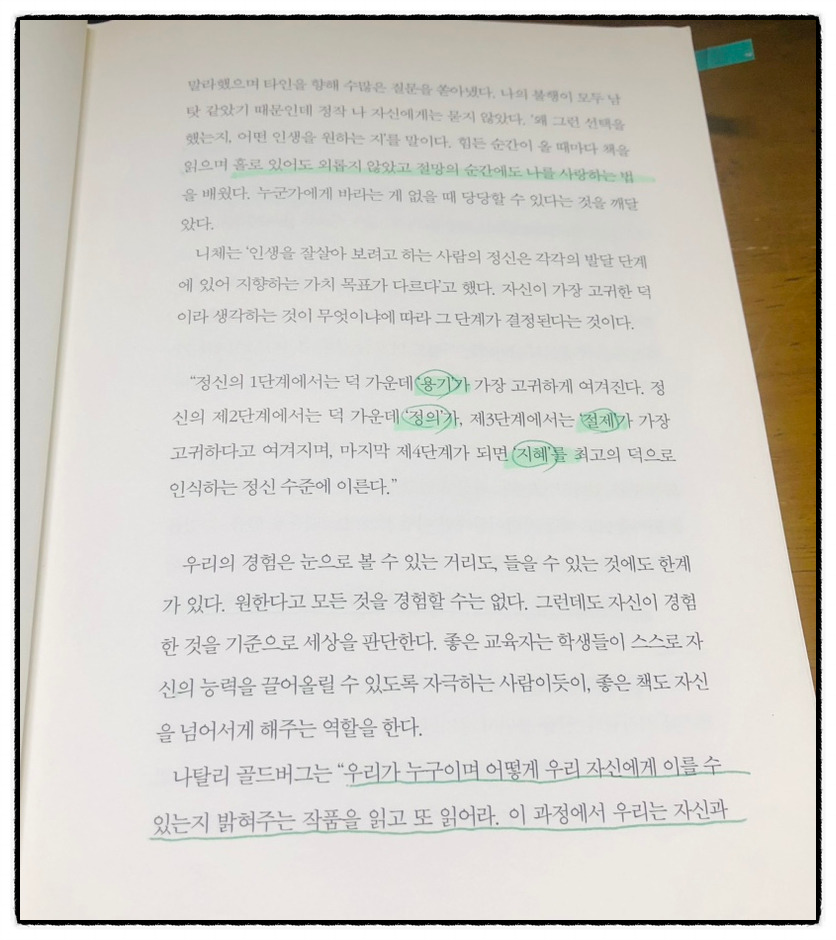 말라했으며 타인을 향해 수많은 질문을 쏟아냈다. 나의 불행이 모두 남
탓 같았기 때문인데 정작 나 자신에게는 묻지 않았다. ‘왜 그런 선택을
했는지, 어떤 인생을 원하는 지’를 말이다. 힘든 순간이 올 때마다 책을
읽으며 홀로 있어도 외롭지 않았고 절망의 순간에도 나를 사랑하는 법
을 배웠다. 누군가에게 바라는 게 없을 때 당당할 수 있다는 것을 깨달
았다.
니체는 ‘인생을 잘살아 보려고 하는 사람의 정신은 각각의 발달 단계
에 있어 지향하는 가치 목표가 다르다’고 했다. 자신이 가장 고귀한 덕
이라 생각하는 것이 무엇이냐에 따라 그 단계가 결정된다는 것이다.
“정신의 1단계에서는 덕 가운데 ‘용기’가 가장 고귀하게 여겨진다. 정
신의 제2단계에서는 덕 가운데 ‘정의’가, 제3단계에서는 ‘절제’가 가장
고귀하다고 여겨지며, 마지막 제4단계가 되면 ‘지혜’를 최고의 덕으로
인식하는 정신 수준에 이른다.”
우리의 경험은 눈으로 볼 수 있는 거리도, 들을 수 있는 것에도 한계
가 있다. 원한다고 모든 것을 경험할 수는 없다. 그런데도 자신이 경험
한 것을 기준으로 세상을 판단한다. 좋은 교육자는 학생들이 스스로 자
신의 능력을 끌어올릴 수 있도록 자극하는 사람이듯이, 좋은 책도 자신
을 넘어서게 해주는 역할을 한다.
나탈리 골드버그는 “우리가 누구이며 어떻게 우리 자신에게 이를 수
있는지 밝혀주는 작품을 읽고 또 읽어라. 이 과정에서 우리는 자신과